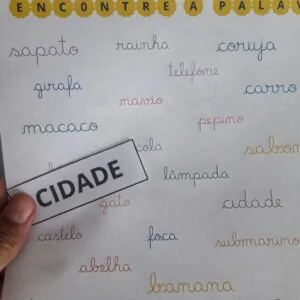 ENCONTRE A PALAV
sapato rainha coruja
telefone
girafa carro
navio
macaco pepino
cola sabon
lâmpada
CIDADE
gato cidade
castelo foca submarino
abelha
banana